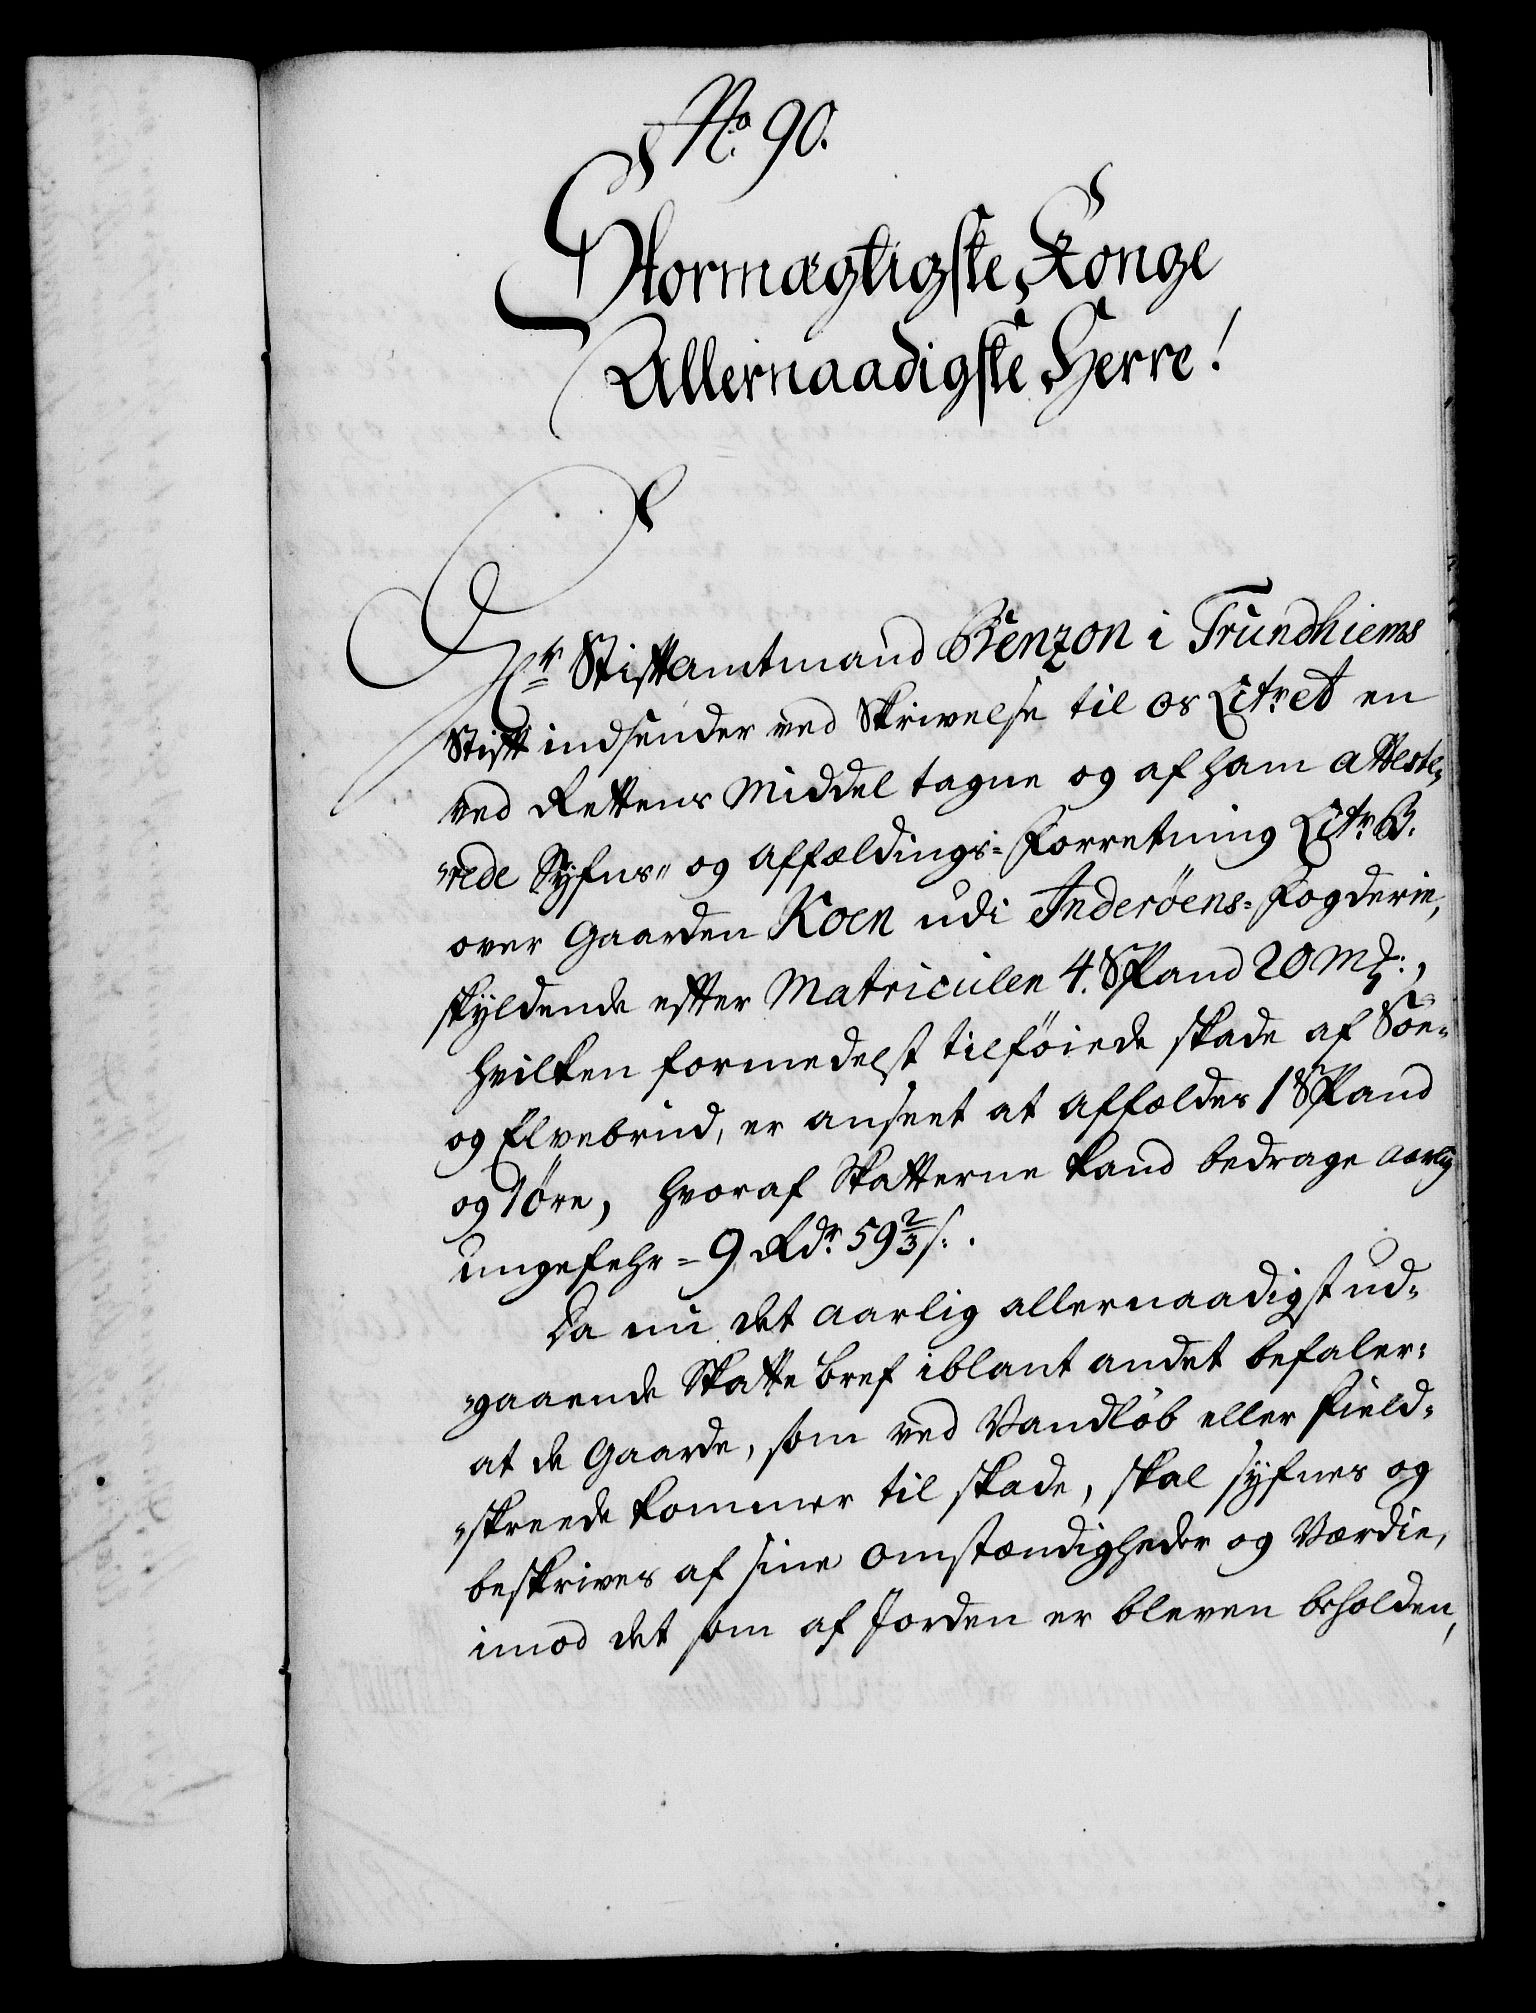 No. 90.
Stormægtigste Konge
Allernaadigste Herre!
Hr. Stiftamtmand Benzon i Trundhiems
Stift indsender ved Skrivelse til os Litr. A en
ved Rettens Middel tagne og af ham atteste„
„rede Syfns„ og Affældings-Forretning Litr. B.
over Gaarden Koen udi Inderöens-Fogderie,
skyldende efter Matriculen 4. Spand 20 Mk:,
hvilken formedelst tilföiede skade af Söe-
og Elvebrud, er anseet at affældes 1 Spand
og 1 öre, hvoraf Skatterne kand bedrage aarlig
ungefehr = 9 Rdr. 59 2/3 s:.
Da nu det aarlig allernaadigst ud-
„gaaende Skatte bref iblant andet befaler:
at de Gaarde, som ved Vandlöb eller Field-
„skreede kommer til skade, skal syfnes og
beskrives af sine omstændigheder og Værdie,
imod det som af Jorden er bleven beholden,